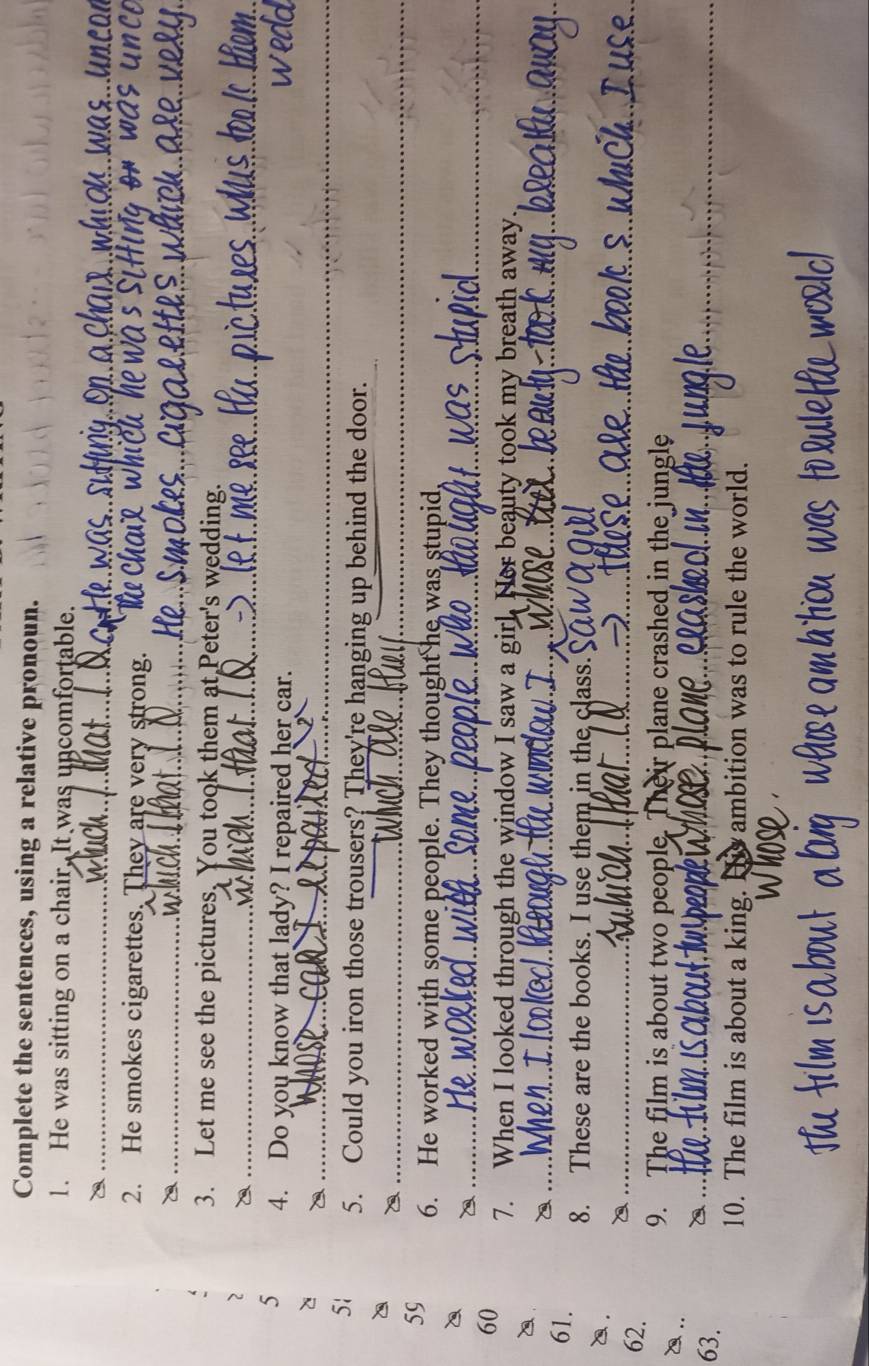 Complete the sentences, using a relative pronoun.
1. He was sitting on a chair. It was uncomfortable.
which / that / Ø He was sitting on a chair which was uncom
The chair which he was sitting on was unco
2. He smokes cigarettes. They are very strong.
which / that / Ø He smokes cigarettes which are very
3. Let me see the pictures. You took them at Peter's wedding.
which / that / Ø -> let me see the pictures whus took them
wedd
4. Do you know that lady? I repaired her car.
whose car I repaired
5. Could you iron those trousers? They're hanging up behind the door.
which are they
6. He worked with some people. They thought he was stupid.
He worked with some people who thought was stupid
7. When I looked through the window I saw a girl. Her beauty took my breath away.
When I looked through the window I whose beauty took my breath away
saw a girl
8. These are the books. I use them in the class.
which / that / Ø -> these are the books which I use
9. The film is about two people. Their plane crashed in the jungle
the film is about two people whose plane crashed in the jungle
10. The film is about a king. His ambition was to rule the world.
whose.
The film is about a king whose ambition was to rule the world
5
5
59
60
61.
62.
63.